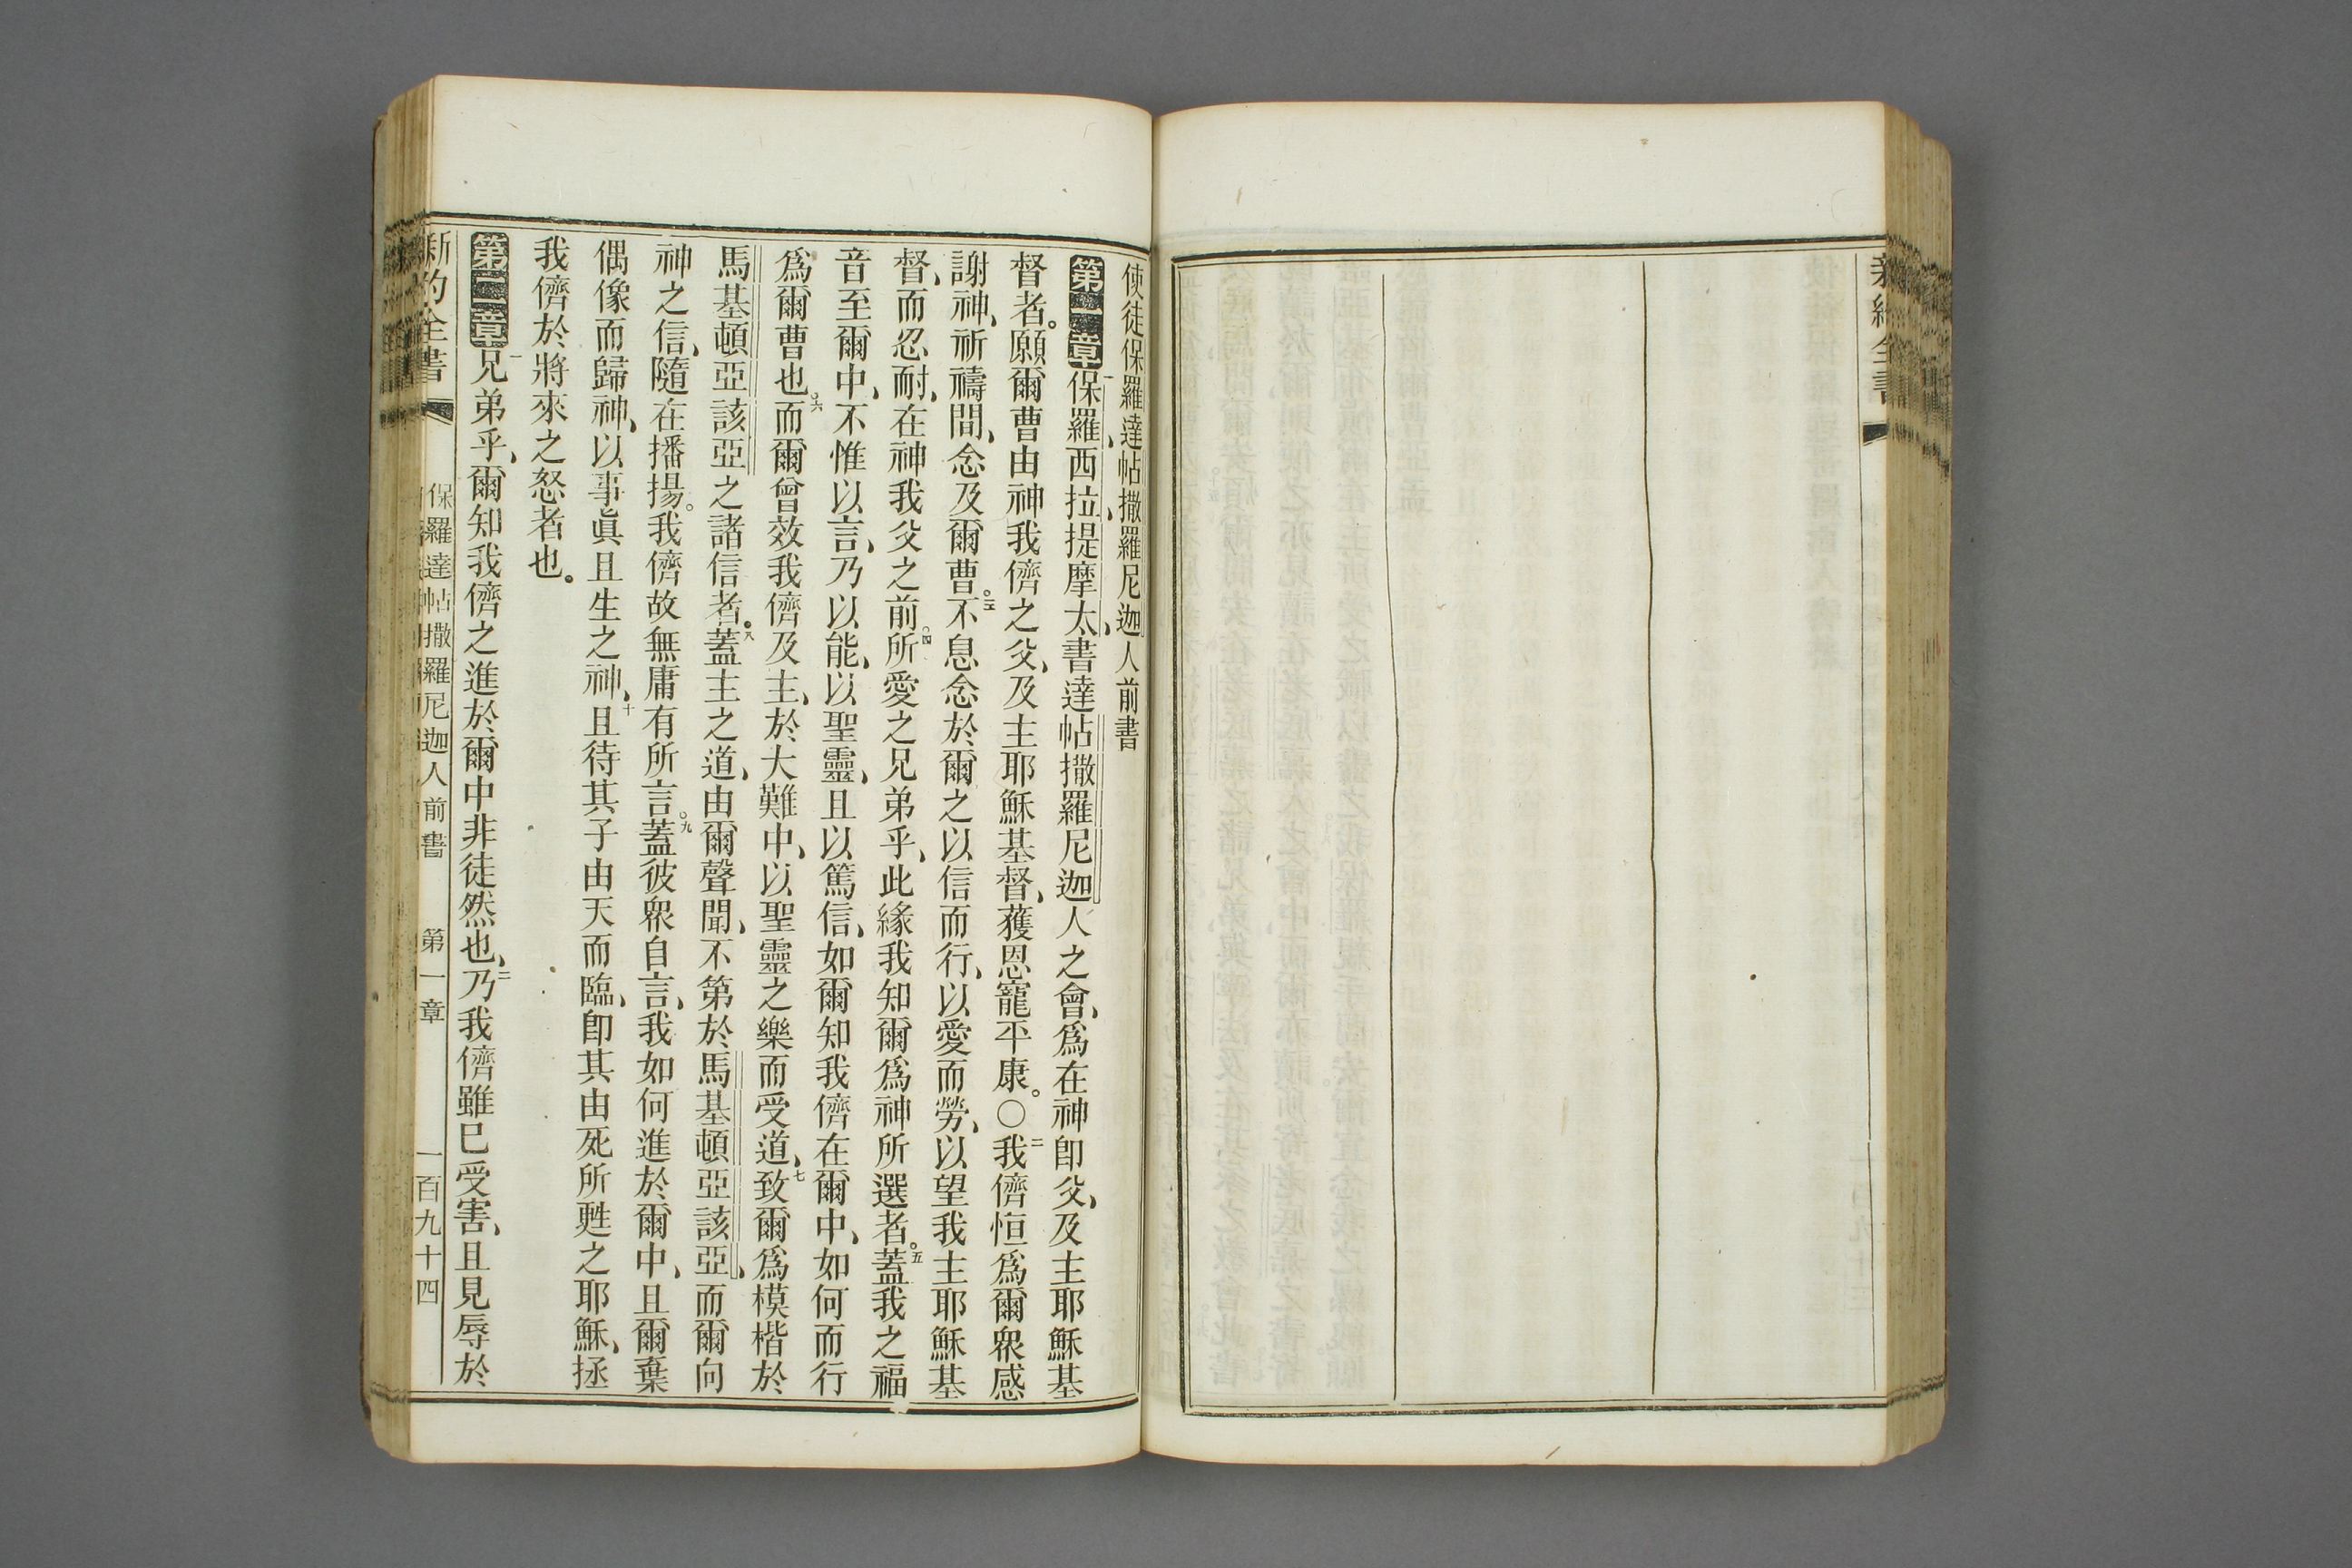 使徒保羅達帖撒羅尼迦人前書
第一章 一保羅、西拉、提摩太、書達帖撒羅尼迦人之會、爲在神卽父、及主耶穌基
督者。願爾曹由神我儕之父、及主耶穌基督、獲恩寵平康。○二我儕恒爲爾衆感
謝神、祈禱間、念及爾曹。三不息念於爾之以信而行、以愛而勞、以望我主耶穌基
督、而忍耐、在神我父之前。四所愛之兄弟乎、此緣我知爾爲神所選者。五蓋我之福
音至爾中、不惟以言、乃以能、以聖靈、且以篤信、如爾知我儕在爾中、如何而行
爲爾曹也。六而爾曾效我儕及主、於大難中、以聖靈之樂而受道、七致爾爲模楷於
馬基頓亞該亞之諸信者。八蓋主之道、由爾聲聞、不第於馬基頓亞該亞、而爾向
神之信、隨在播揚。我儕故無庸有所言。九蓋彼衆自言、我如何進於爾中、且爾棄
偶像而歸神、以事眞且生之神、十且待其子由天而臨、卽其由死所甦之耶穌、拯
我儕於將來之怒者也。
第二章 一兄弟乎、爾知我儕之進於爾中非徒然也、二乃我儕雖已受害、且見辱於
新約全書 保羅達帖撒羅尼迦人前書 第一章 一百九十四